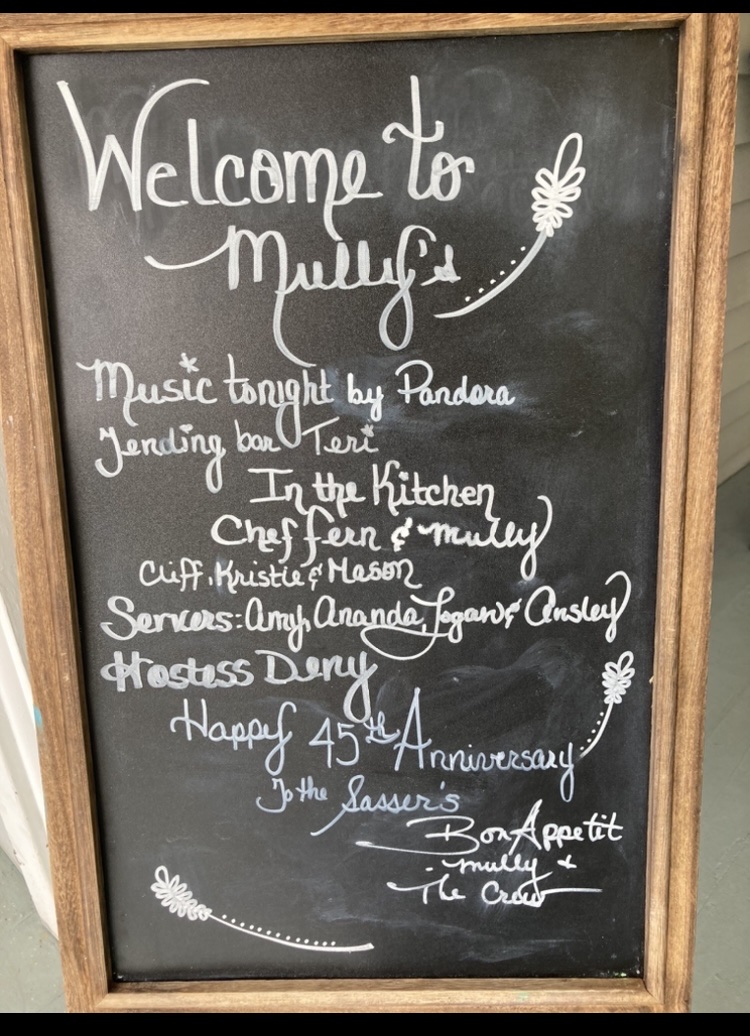 Welcome to
Mully's
Music tonight by Pandora
Tending bar Teri
In the Kitchen
Chef Fern & Mully
Cliff, Kristie & Mason
Servers: Amy, Ananda, Logan & Ansley
Hostess Deny
Happy 45th Anniversary
To the Sasser's
Bon Appetit
Mully +
The Crew